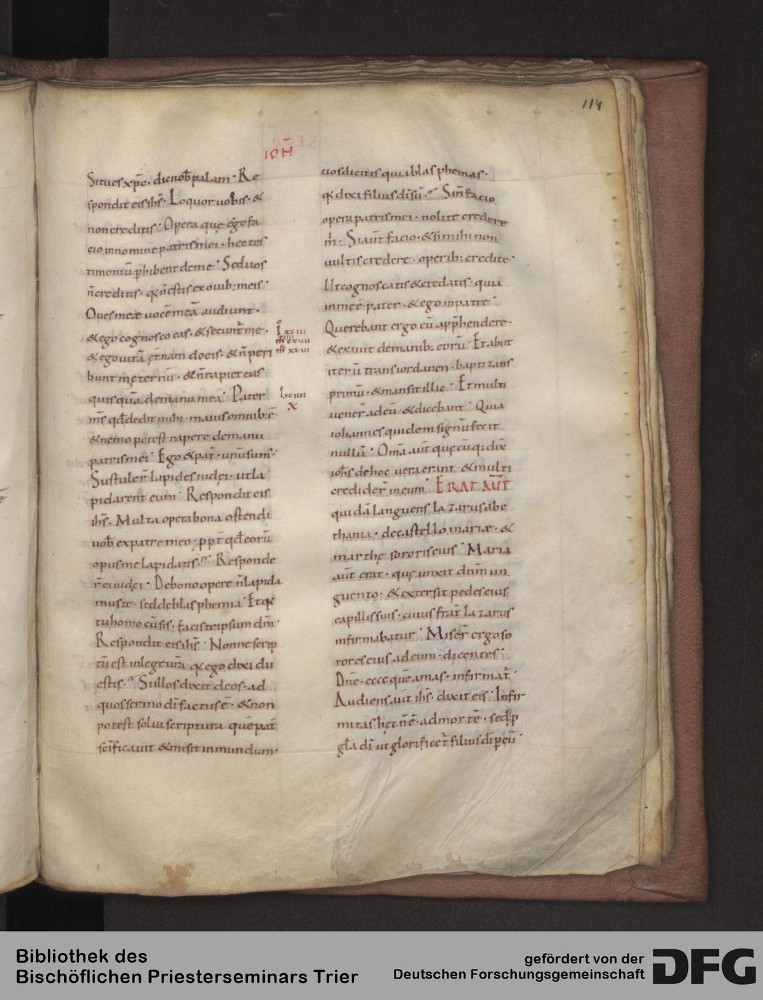 114
IOH̄
Situes xp̄e · dic nob̄ palam · Re
spondit eis ih̄s · Loquor uobis · &
non creditis · Opera que ego fa
cio in nomine patris mei · hec tes
timoniū phibent de me · Sed uos
n̄ creditis · q̄ n̄ estis ex ouib; meis ·
Oues meæ uocē meā audiunt ·
& ego cognosco eas · & secunt̄ me ·
& ego uitā et̄nam do eis · & n̄ peri
bunt in et̄ernū · & n̄ rapiet eas
quisquā de manu mea · Pater
m̄s qđ dedit mihi · maius omnib; ē ·
& nemo potest rapere de manu
patris mei · Ego & pat̄ · unū sum̄ ·
Sustuler̄ lapides iudei · ut la
pidarent eum · Respondit eis
ih̄s · Multa opera bona ostendi
uob̄ ex patre meo · ppt̄ qđ eorū
opus me lapidatis · Responde
r̄ ei iudei · De bono opere n̄ lapida
mus te · sed de blasphemia · Et q̄
tu homo cū sis · facis te ipsum dm̄ ·
Respondit eis ih̄s · Nonne scrip
tū est in lege ura · q̄ ego dixi dii
estis · Si illos dixit deos · ad
quos sermo di factus ē · & non
potest solui scriptura · quē pat̄
sc̄ificauit & misit in mundum ·
uos dicitis quia blasphemas ·
q̄ dixi filius di sū · Si n̄ facio
opera patris mei · nolite credere
m̄ · Si aut̄ facio · & si mihi non
uultis credere · operib; credite ·
Ut cognoscatis & credatis · quia
in me ē pater · & ego in patre ·
Querebant ergo eū apphendere ·
& exiuit de manib; eorū · Et abiit
iterū trans iordanen · baptizans
primū · & mansit illic · Et multi
uener̄ ad eū · & dicebant · Quia
iohannes quidem signū fecit
nullū · Om̄a aut̄ quecūq; dix̄
ioh̄s de hoc uera erant · & multi
credider̄ in eum · ERAT AUT̄
quidā languens lazarus a be
thania · de castello mariæ · &
marthe sororis eius · Maria
aut̄ erat · que unxit dnm̄ un
guento · & extersit pedes eius
capillis suis · cuius frat̄ lazarus
infirmabatur · Miser̄ ergo so
rores eius ad eum · dicentes ·
Dn̄e · ecce quē amas · infirmat̄ ·
Audiens aut̄ ih̄s · dixit eis · Infir
mitas hec n̄ ē · ad mortē · sed p
gla di · ut glorificet̄ filius di p eū ·
Bibliothek des
Bischöflichen Priesterseminars Trier
gefördert von der
Deutschen Forschungsgemeinschaft
DFG